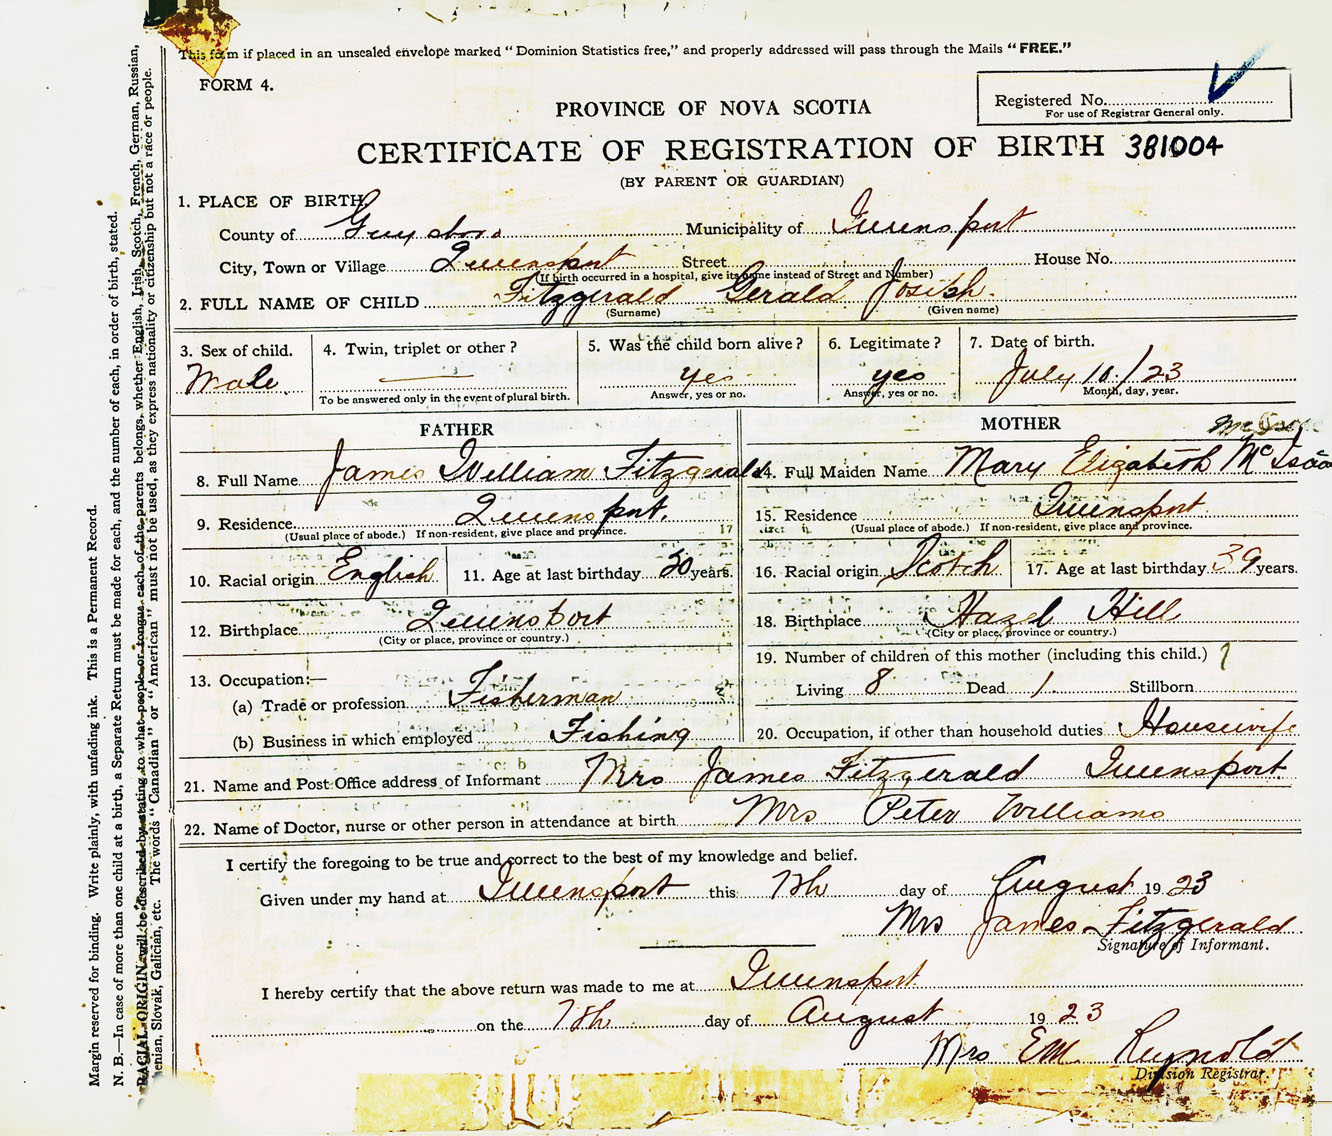 This form if placed in an unsealed envelope marked "Dominion Statistics free," and properly addressed will pass through the Mails "FREE."
FORM 4.
Registered No.
For use of Registrar General only.
PROVINCE OF NOVA SCOTIA
CERTIFICATE OF REGISTRATION OF BIRTH 381004
(BY PARENT OR GUARDIAN)
1. PLACE OF BIRTH
County of Guysboro Municipality of Queensport
City, Town or Village Queensport Street House No.
(If birth occurred in a hospital, give its name instead of Street and Number)
2. FULL NAME OF CHILD Fitzgerald Gerald Josieh.
(Surname) (Given name)
3. Sex of child. 4. Twin, triplet or other? 5. Was the child born alive? 6. Legitimate? 7. Date of birth.
Male yes yes July 10/23
To be answered only in the event of plural birth. Answer, yes or no. Answer, yes or no. Month, day, year.
FATHER
8. Full Name James William Fitzgerald
9. Residence Queensport.
(Usual place of abode.) If non-resident, give place and province.
17
10. Racial origin English 11. Age at last birthday 50 years.
12. Birthplace Queensport
(City or place, province or country.)
13. Occupation:—
(a) Trade or profession Fisherman
(b) Business in which employed Fishing
MOTHER
14. Full Maiden Name Mary Elizabeth McIsaac
15. Residence Queensport.
(Usual place of abode.) If non-resident, give place and province.
16. Racial origin Scotch 17. Age at last birthday 39 years.
18. Birthplace Hazel Hill
(City or place, province or country.)
19. Number of children of this mother (including this child.)
Living 8 Dead 1 Stillborn
20. Occupation, if other than household duties Housewife
21. Name and Post Office address of Informant Mrs James Fitzgerald Queensport
22. Name of Doctor, nurse or other person in attendance at birth Mrs Peter Williams
I certify the foregoing to be true and correct to the best of my knowledge and belief.
Given under my hand at Queensport this 7th day of August 1923
Mrs James Fitzgerald
Signature of Informant.
I hereby certify that the above return was made to me at Queensport.
on the 7th day of August 1923
Mrs EM Reynolds
Division Registrar.
Margin reserved for binding. Write plainly, with unfading ink. This is a Permanent Record.
N. B.—In case of more than one child at a birth, a Separate Return must be made for each, and the number of each, in order of birth, stated.
RACIAL ORIGIN will be described by stating to what people or tongue each of the parents belongs, whether English, Irish, Scotch, French, German, Russian,
enian, Slovak, Galician, etc. The words "Canadian" or "American" must not be used, as they express nationality or citizenship but not a race or people.